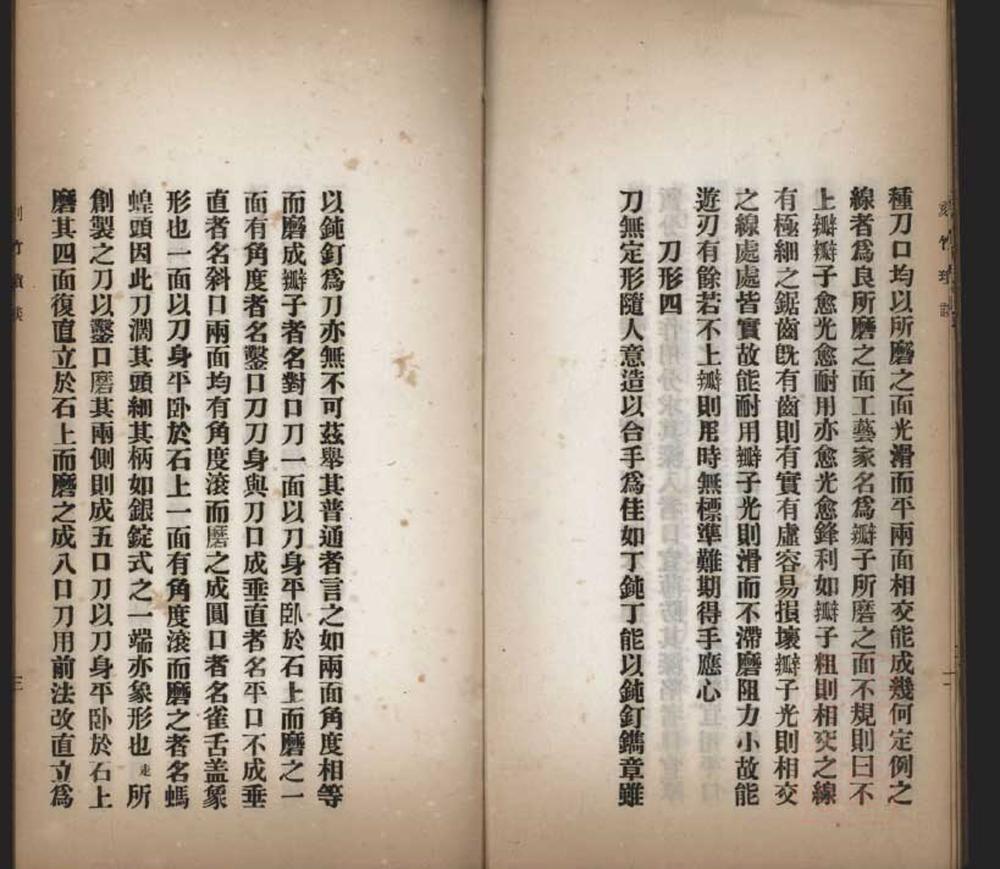 種刀口均以所磨之面光滑而平兩面相交能成幾何定例之
線者爲良所磨之面工藝家名爲瓣子所磨之面不規則曰不
上瓣瓣子愈光愈耐用亦愈光愈鋒利如瓣子粗則相交之線
有極細之鋸齒旣有齒則有實有虛容易損壞瓣子光則相交
之線處處皆實故能耐用瓣子光則滑而不滯磨阻力小故能
遊刃有餘若不上瓣則用時無標準難期得手應心
刀形四
刀無定形隨人意造以合手爲佳如丁鈍丁能以鈍釘鐫章雖
以鈍釘爲刀亦無不可茲舉其普通者言之如兩面角度相等
而磨成瓣子者名對口刀一面以刀身平臥於石上而磨之一
面有角度者名鑿口刀刀身與刀口成垂直者名平口不成垂
直者名斜口兩面均有角度滾而磨之成圓口者名雀舌盖象
形也一面以刀身平卧於石上一面有角度滾而磨之者名螞
蝗頭因此刀濶其頭細其柄如銀錠式之一端亦象形也走所
創製之刀以鑿口磨其兩側則成五口刀以刀身平卧於石上
磨其四面復直立於石上而磨之成八口刀用前法改直立爲
竹
三